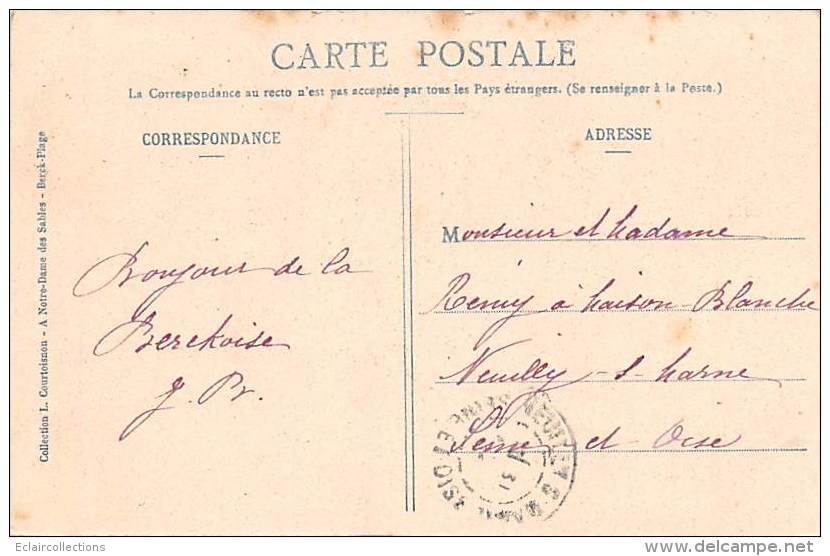 CARTE POSTALE
La Correspondance au recto n'est pas acceptée par tous les Pays étrangers. (Se renseigner à la Poste.)
CORRESPONDANCE
ADRESSE
Collection L. Courtoisnon - A Notre-Dame des Sables - Berck-Plage
Bonjour de la
Berckoise
J. Pr.
Monsieur et Madame
Remy à Maison-Blanche
Neuilly-s-Marne
Seine et Oise
NEUILLY S MARNE
SEINE ET OISE
31
Eclaircollections
www.delcampe.net